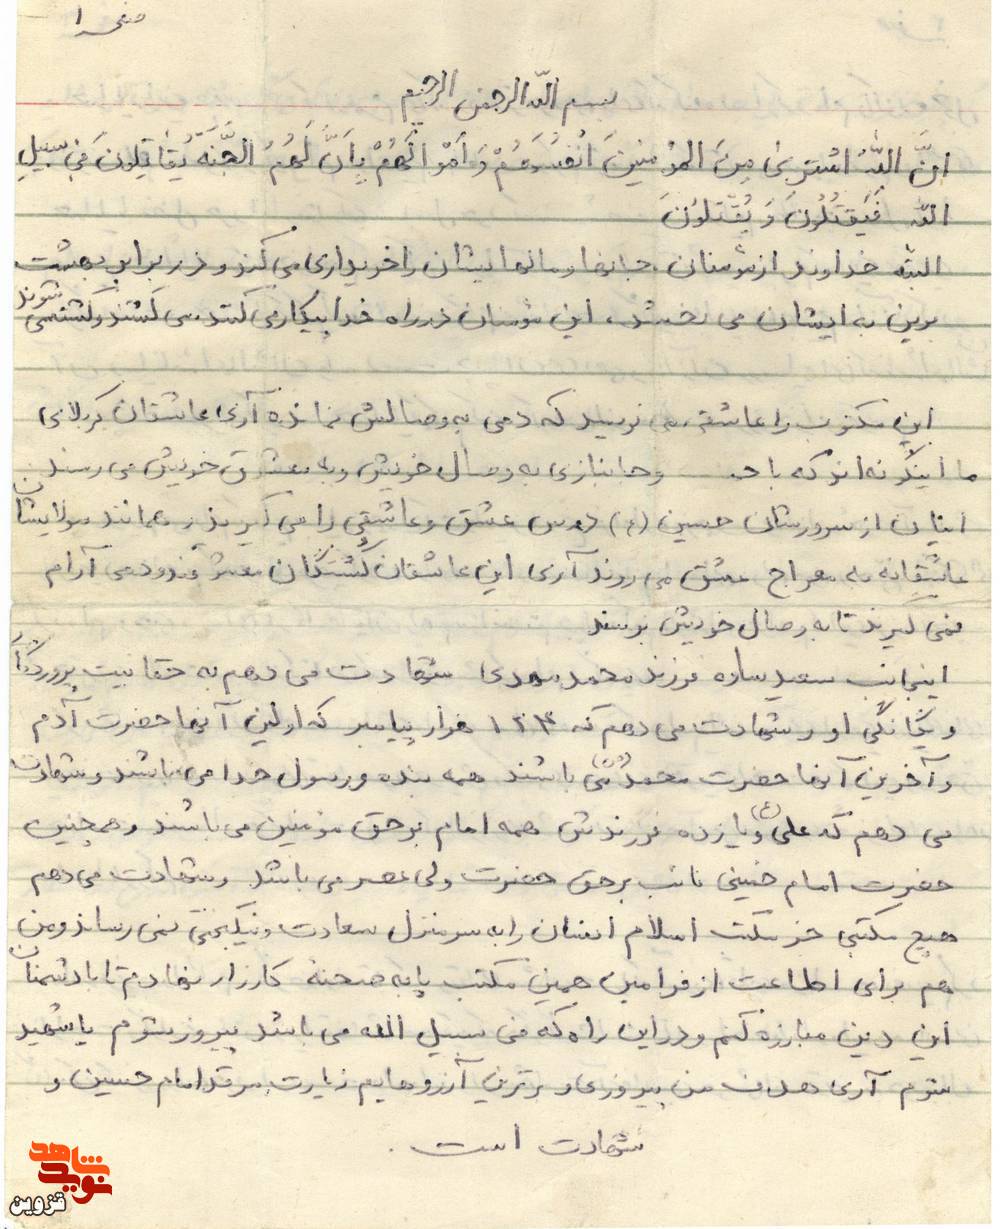 صفحه ۱
بسم الله الرحمن الرحیم
انَّ اللّٰهُ اشتریٰ مِنَ المؤمِنینَ اَنْفُسَهُمْ وَ اَمْوالَهُمْ بِاَنَّ لَهُمُ الجَنَّهَ یُقاتِلونَ فی سَبیلِ
اللّٰه فَیَقتُلُونَ وَ یُقْتَلوُنَ
البته خداوند از مؤمنان جانها و مالهایشان را خریداری می کند و در برابر بهشت
برین به ایشان می بخشد، این مؤمنان در راه خدا پیکار می کنند می کشند و کشته می شوند
این مکتوب را عاشقی می نویسد که دمی به وصالش نمانده آری عاشقان کربلای
ما اینگونه اند که با وجانبازی به وصال خویش و به معشوق خویش می رسند
اینان از سرورشان حسین (ع) درس عشق و عاشقی را می آموزند و همانند مولایشان
عاشقانه به معراج عشق می روند آری این عاشقان کُشتگان معشوقند و دمی آرام
نمی گیرند تا به وصال خویش برسند
اینجانب سعید ساده فرزند محمدمهدی شهادت می دهم به حقانیت پروردگار
و یگانگی او و شهادت می دهم که ۱۲۴ هزار پیامبر که اولین آنها حضرت آدم
و آخرین آنها حضرت محمد (ص) می باشند همه بنده و رسول خدا می باشند و شهادت
می دهم که علی (ع) و یازده فرزندش همه امام برحق مؤمنین می باشند و همچنین
حضرت امام خمینی نائب برحق حضرت ولی عصر می باشد و شهادت می دهم
هیچ مکتبی جز مکتب اسلام انسان را به سرمنزل سعادت و نیکبختی نمی رساند و من
هم برای اطاعت از فرامین همین مکتب پا به صحنه کارزار نهادم تا با دشمنان
این دین مبارزه کنم و در این راه که فی سبیل الله می باشد پیروز شوم یا شهید
شوم آری هدف من پیروزی و برترین آرزوهایم زیارت مرقد امام حسین و
شهادت است .
نوید شاهد
قزوین